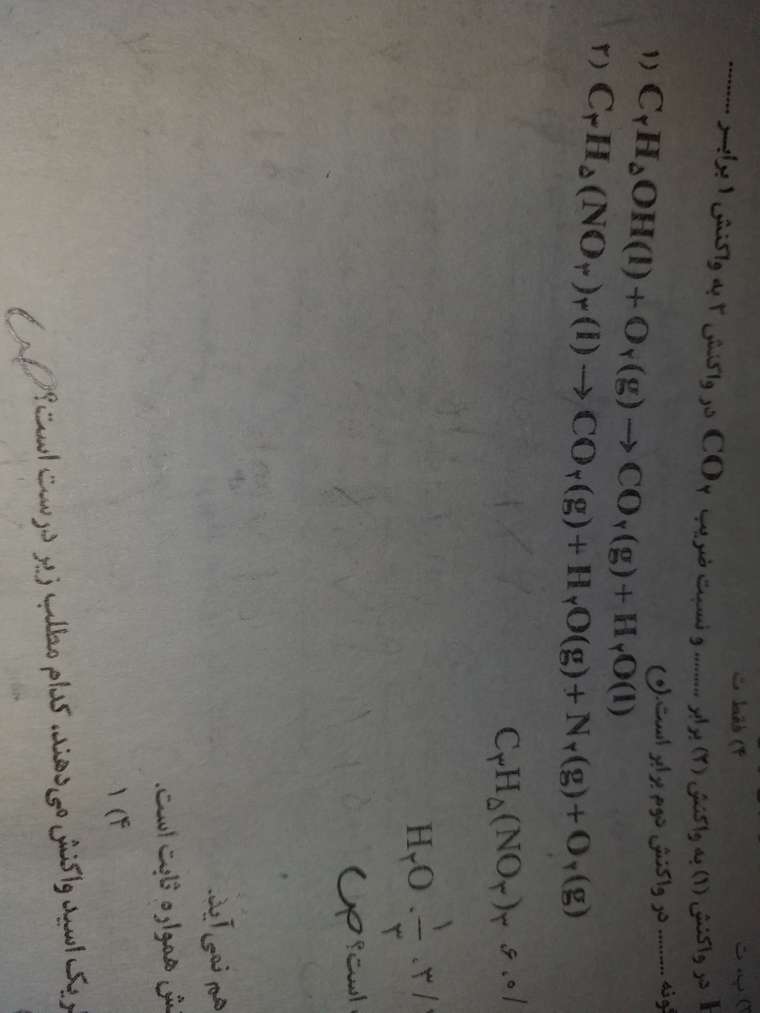 ب، ت ۴) فقط ت
در واکنش (۱) به واکنش (۲) برابر ........ و نسبت ضریب CO۲ در واکنش ۲ به واکنش ۱ برابر ........
گونه ........ در واکنش دوم برابر است.
۱) C۲H۵OH(l) + O۲(g) → CO۲(g) + H۲O(l)
۲) C۳H۵(NO۳)۳(l) → CO۲(g) + H۲O(g) + N۲(g) + O۲(g)
C۳H۵(NO۳)۳
H۲O . ۱/۳ .
است؟
هم نمی‌آید.
همواره ثابت است.
۴) ۱
ریک اسید واکنش می‌دهند، کدام مطلب زیر درست است؟